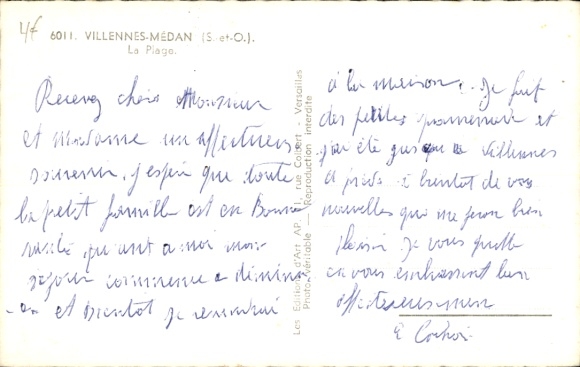 6011. VILLENNES-MÉDAN (S.-et-O.).
La Plage.
Recevez chers Monsieur
et Madame un affectueux
souvenir, j'espère que toute
la petit famille est en Bonne
santé, quant a moi mon
séjour commence a diminu
-er et bientot je
à la maison. Je fait
des petites promenade et
j'ai été jusqu'a Villennes
a pieds a bientot de vos
nouvelles qui me feron bien
plaisir Je vous quitte
en vous embrassant bien
affectueusement
Les Editions d'Art AP, 1, rue Colbert - Versailles
Photo véritable — Reproduction Interdite